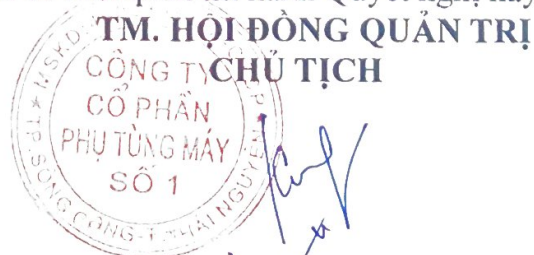 Quyết nghị này
TM. HỘI ĐỒNG QUẢN TRỊ
CHỦ TỊCH
CÔNG TY
CỔ PHẦN
PHỤ TÙNG MÁY
SỐ 1
TP. SÔNG CÔNG - T. THÁI NGUYÊN